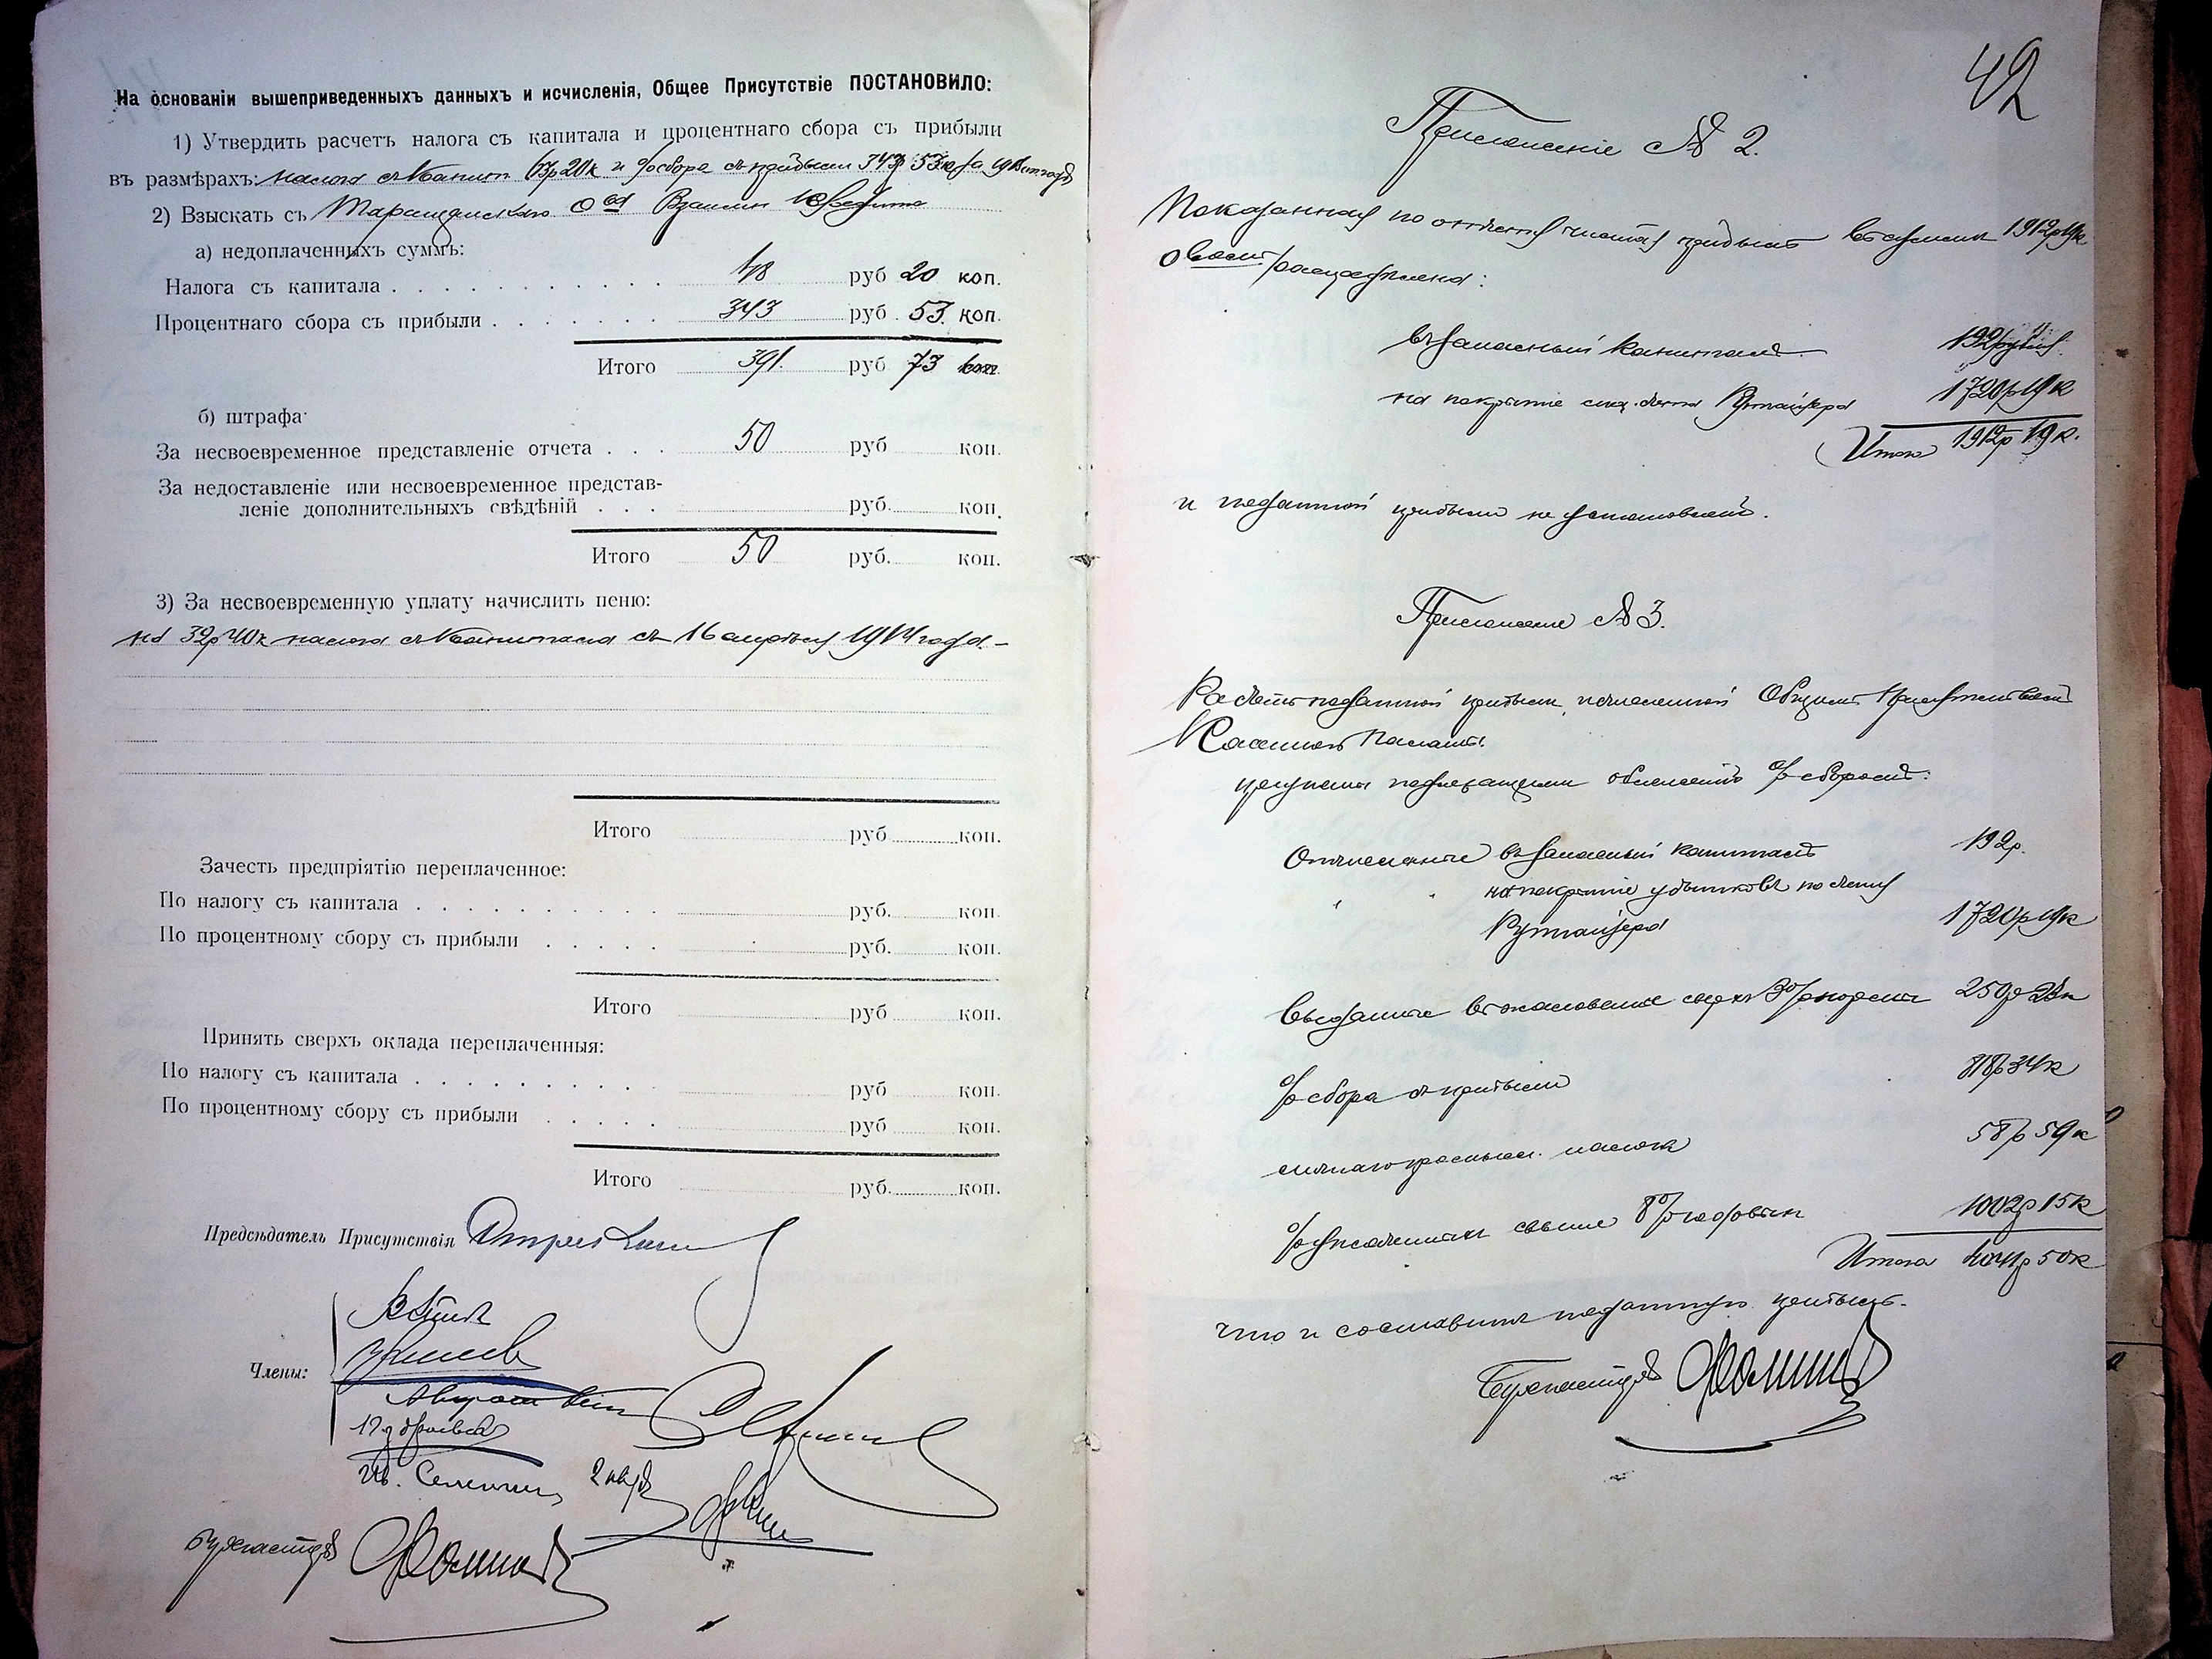 На основаніи вышеприведенныхъ данныхъ и исчисленія, Общее Присутствіе ПОСТАНОВИЛО:
1) Утвердить расчетъ налога съ капитала и процентнаго сбора съ прибыли
въ размѣрахъ: налога съ капит 63р 20к и % сбора съ прибыли 343р 53к за
2) Взыскать съ Таращанскаго О-ва Взаимн Кредита
а) недоплаченныхъ суммъ:
Налога съ капитала . . . 48 руб 20 коп.
Процентнаго сбора съ прибыли . . . 343 руб. 53. коп.
Итого 391. руб 73 коп
б) штрафа
За несвоевременное представленіе отчета . . . 50 руб коп.
За недоставленіе или несвоевременное представ-
леніе дополнительныхъ свѣдѣній . . . руб. коп.
Итого 50 руб. коп.
3) За несвоевременную уплату начислить пеню:
на 32р 40к налога съ капитала съ 16 апрѣля 1914 года. –
Итого руб. коп.
Зачесть предпріятію переплаченное:
По налогу съ капитала . . . руб. коп.
По процентному сбору съ прибыли . . . руб. коп.
Итого руб. коп.
Принять сверхъ оклада переплаченныя:
По налогу съ капитала . . . руб коп.
По процентному сбору съ прибыли . . . руб коп.
Итого руб. коп.
Предсѣдатель Присутствія
Члены:
Бухгалтеръ
42
Приложеніе № 2.
Показанная по отчету чистая прибыль въ суммѣ 1912р 19к
распредѣлена:
въ запасный капиталъ 192 рубля.
на покрытіе спец. счета 1720р 19к
Итого 1912р 19к.
и податной прибыли не установлено.
Приложеніе № 3.
Расчетъ податной прибыли, исчисленной Общимъ Присутствіемъ
Казенной Палаты.
подлежащей обложенію % сборомъ:
Отчисленіе въ запасный капиталъ 192р.
на покрытіе убытковъ по счету
1720р 19к
Выданные въ жалованіе сверхъ 3% нормы
% сбора съ прибыли 818р 34к
налога 58р 59к
% уплаченныхъ свыше 8% годовыхъ 1002р 15к
Итого 4041р 50к
что и составитъ податную прибыль.
Бухгалтеръ